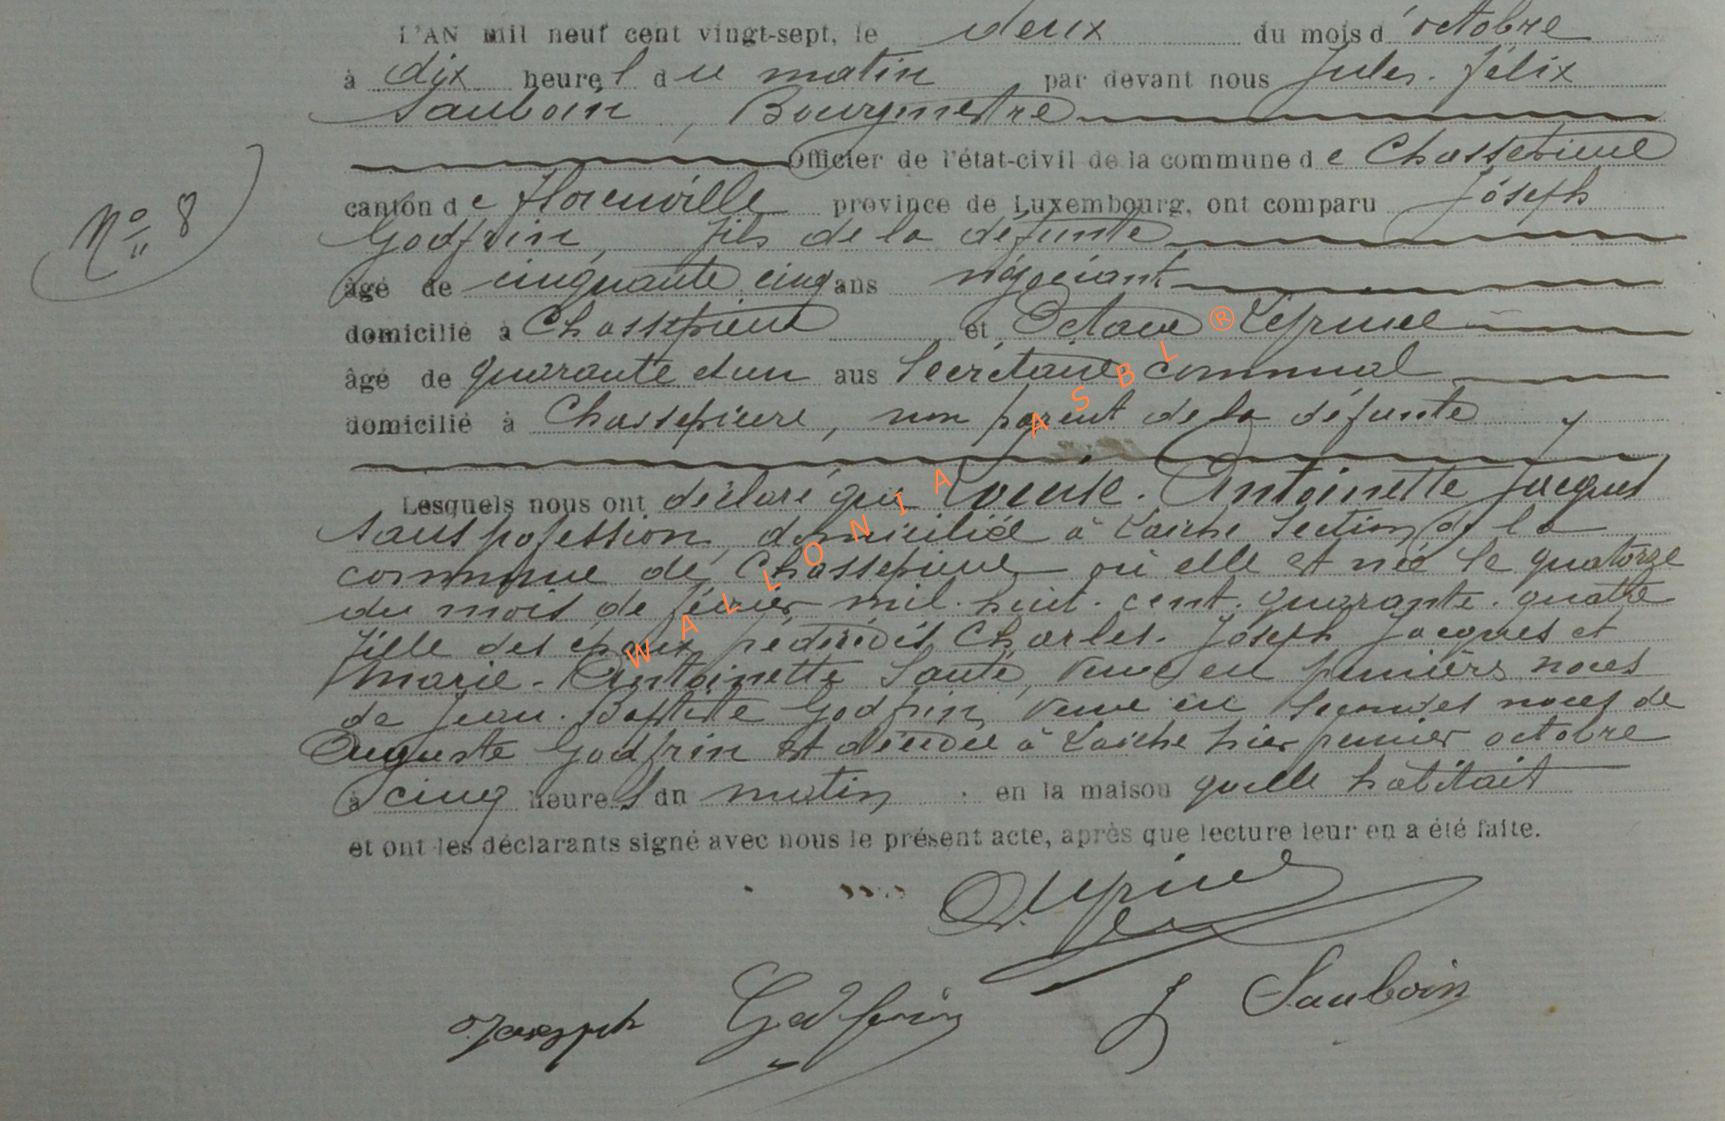 L'AN mil neuf cent vingt-sept, le deux du mois d'octobre
à dix heures du matin par devant nous Jules-Félix
Sauboin, Bourgmestre
Officier de l'état-civil de la commune de Chassepierre
canton de Florenville province de Luxembourg, ont comparu Joseph
N° 8
Godfrin, fils de la défunte
âgé de cinquante cinq ans négociant
domicilié à Chassepierre et Octave
âgé de quarante et un ans Secrétaire communal
domicilié à Chassepierre, non parent de la défunte
Lesquels nous ont déclaré que Louise-Antoinette Jacques
sans profession, domiciliée à Laiche section de la
commune de Chassepierre où elle est née le quatorze
du mois de février mil-huit-cent-quarante-quatre
fille des époux prédécédés Charles-Joseph Jacques et
Marie-Antoinette Santé, veuve en premiers noces
de Jean-Baptiste Godfrin, veuve en secondes noces de
Auguste Godfrin est décédée à Laiche hier premier octobre
à cinq heures du matin en la maison qu'elle habitait
et ont les déclarants signé avec nous le présent acte, après que lecture leur en a été faite.
Joseph Godfrin J Sauboin
WALLONIA ASBL ®